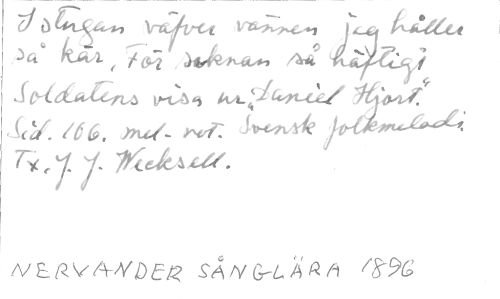 I stugan väfver vännen jag håller
så kär, För saknan så häftigt
Soldatens visa ur "Daniel Hjort."
Sid. 106. mel-not. Svensk folkmelodi.
Tx. J. J. Wecksell.
NERVANDER SÅNGLÄRA 1896